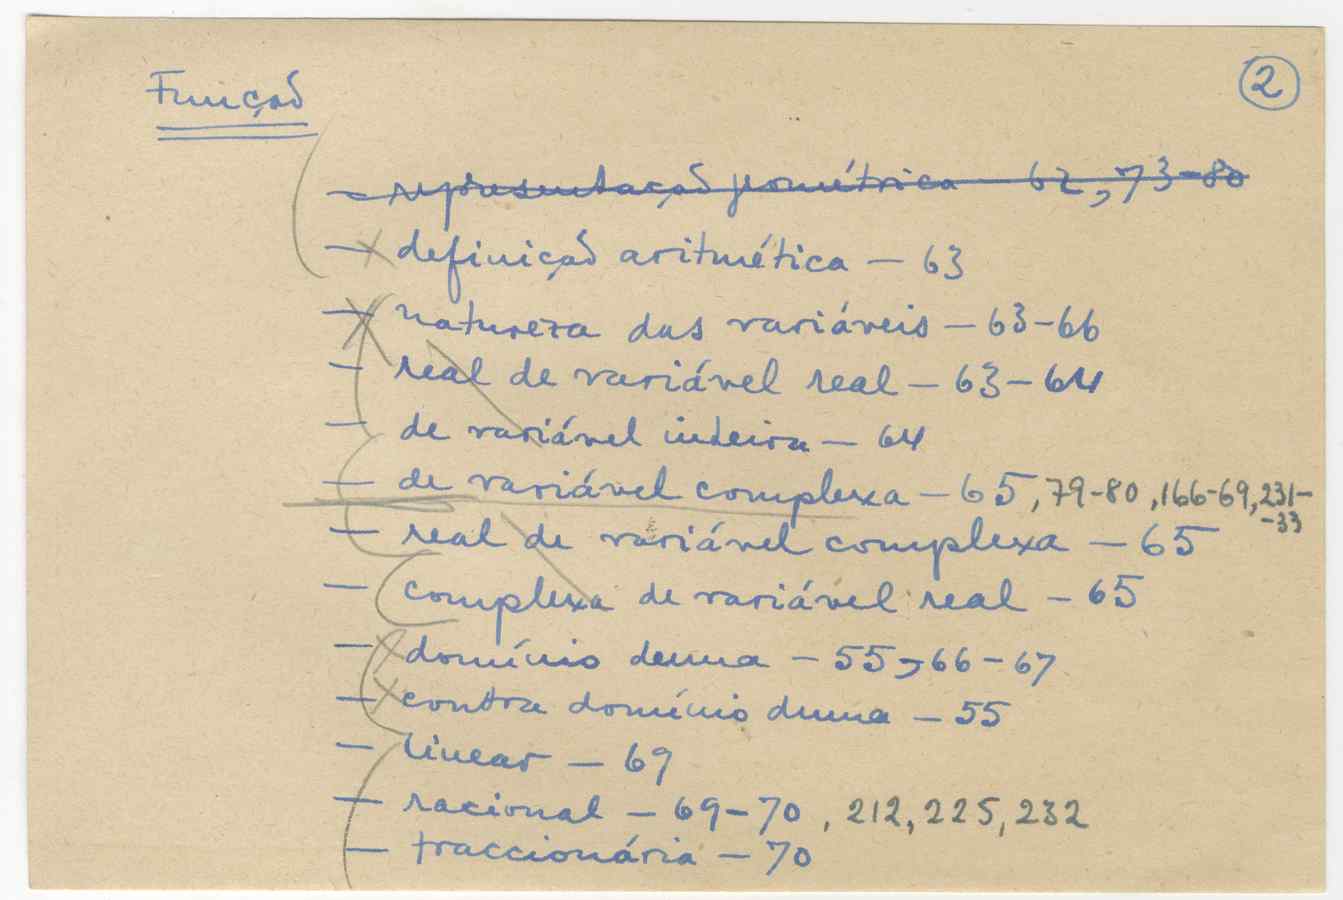 Função
2
— representação geométrica — 62, 73-80
— definição aritmética — 63
— natureza das variáveis — 63-66
— real de variável real — 63-64
— de variável inteira — 64
— de variável complexa — 65, 79-80, 166-69, 231-
-33
— real de variável complexa — 65
— complexa de variável real — 65
— domínio duma — 55, 66-67
— contra domínio duma — 55
— linear — 69
— racional — 69-70, 212, 225, 232
— fraccionária — 70